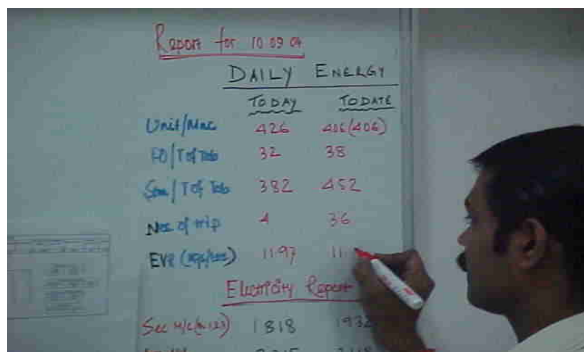 Report for 10 09 04
DAILY ENERGY
TODAY TODATE
Unit/Mnc 426 406 (406)
FO/T of Tob 32 38
Stm/T of Tob 382 452
Nos. of trip 4 36
EVR 11.97 11.
Electricity Report
Sec M/C 1818 1932